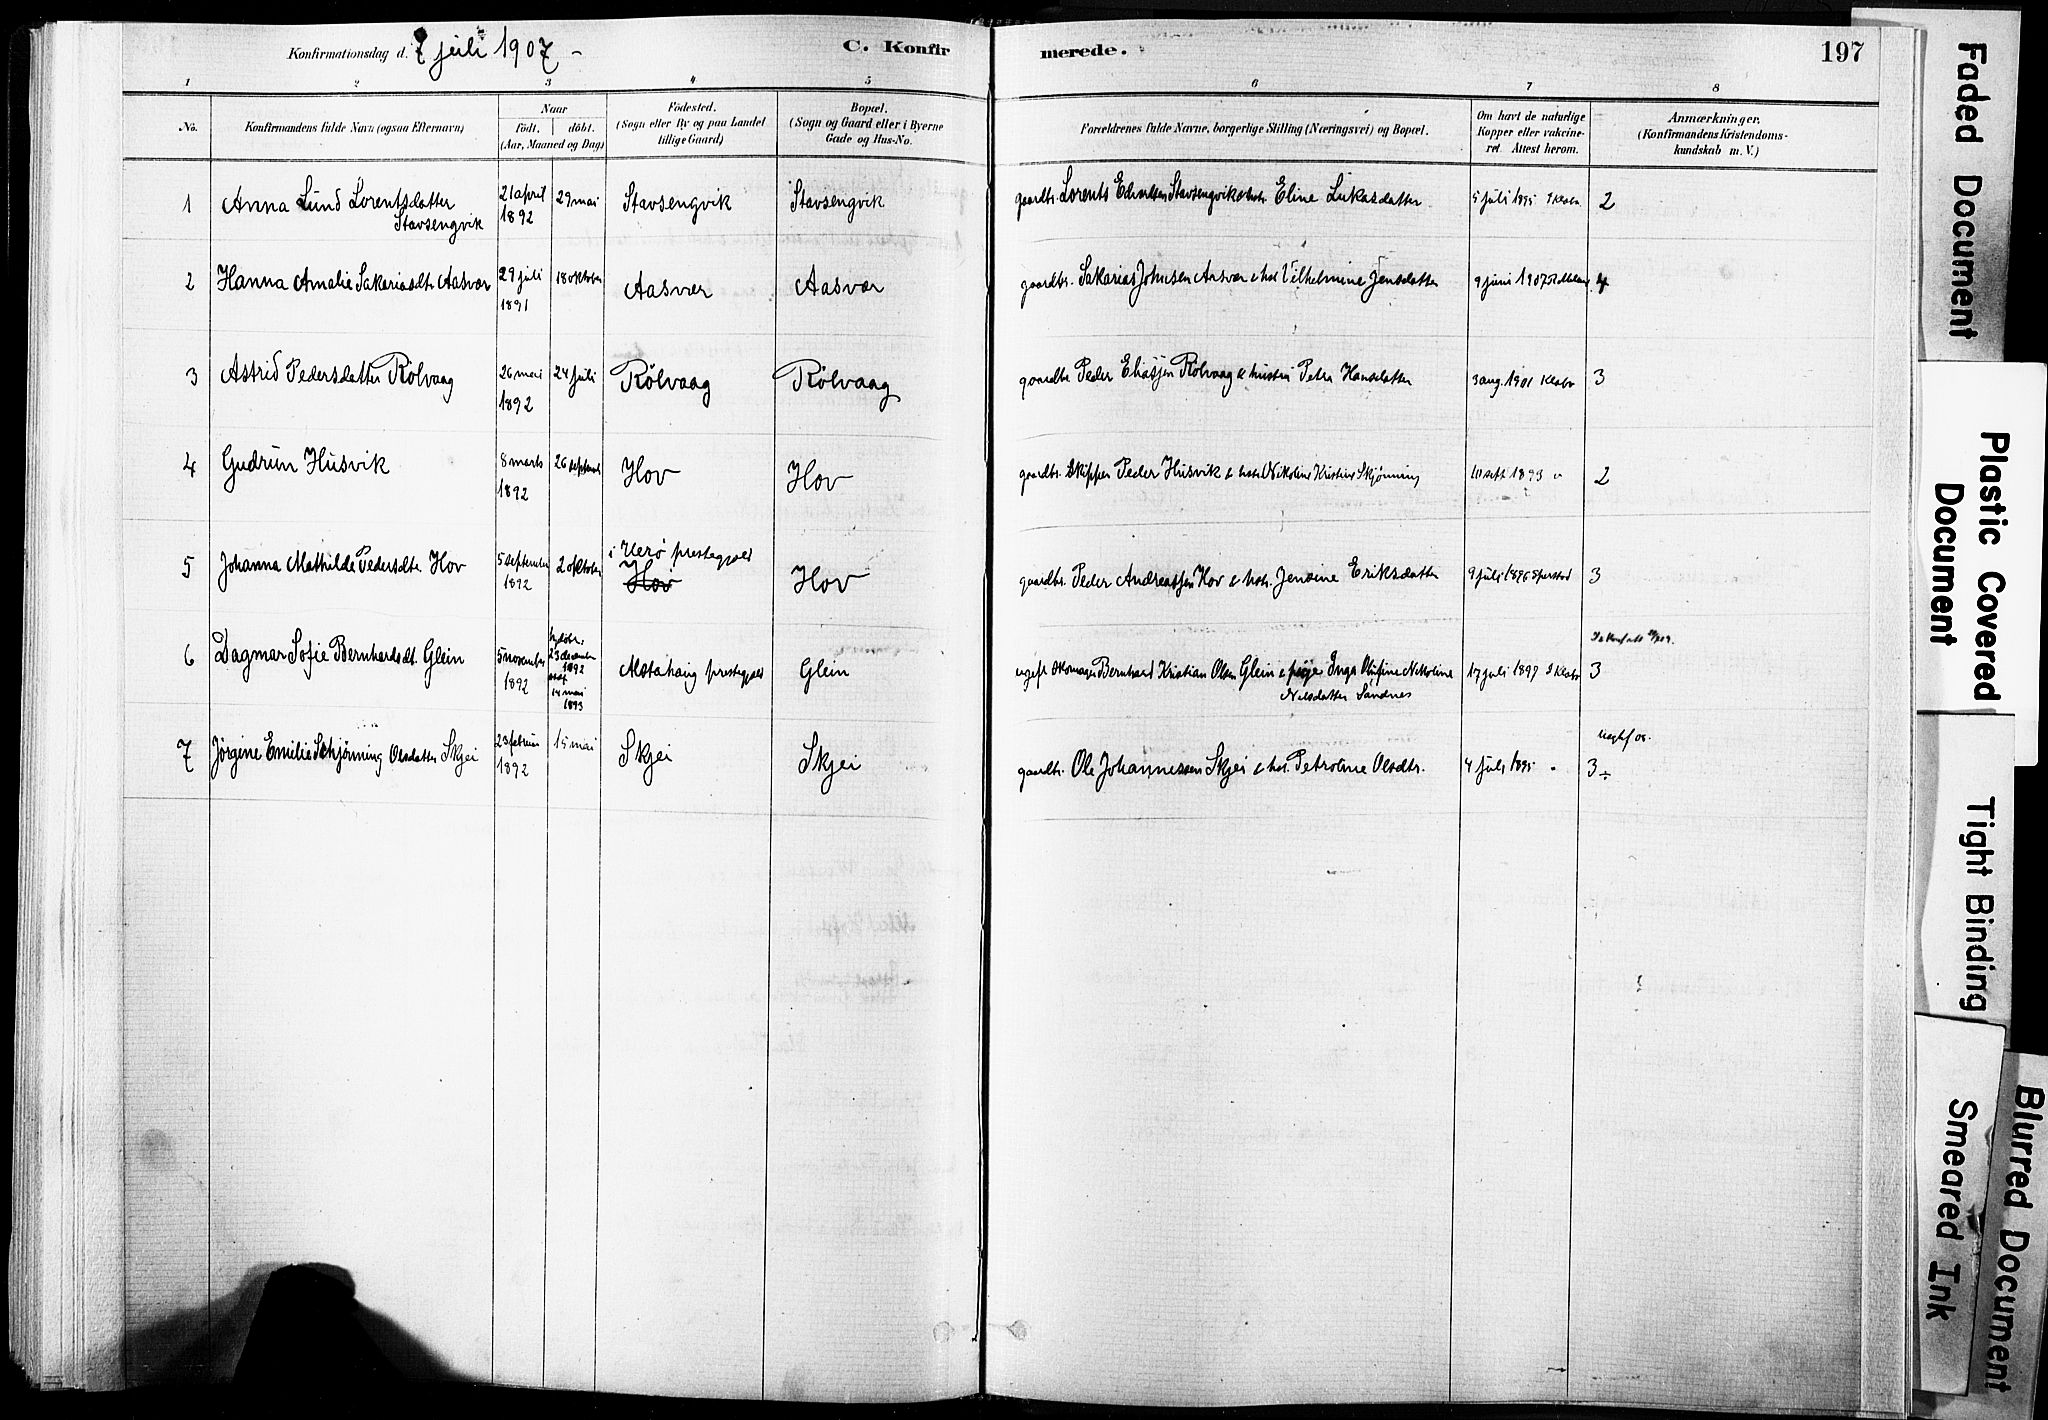 Konfirmationsdag d. 7 juli 1907 -
C. Konfir
merede.
197
1 2 3 4 5 6 7 8
No.
Konfirmandens fulde Navn (ogsaa Efternavn)
Naar
födt. döbt.
(Aar, Maaned og Dag)
Födested.
(Sogn eller By og paa Landet
tillige Gaard)
Bopæl.
(Sogn og Gaard eller i Byerne
Gade og Hus-No.
Forældrenes fulde Navne, borgerlige Stilling (Næringsvei) og Bopæl.
Om havt de naturlige
Kopper eller vakcine-
ret. Attest herom.
Anmærkninger.
(Konfirmandens Kristendoms-
kundskab m. V.)
1 Anna Lund Lorentsdatter
Stavsengvik
21 april
1892
29 mai
Stavsengvik
Stavsengvik
gaardbr. Lorents Stavsengvik Eline Lukasdatter
5 juli 1895
2
2 Hanna Amalie Sakariasdtr Aasvær
29 juli
1891
18 oktober
Aasvær
Aasvær
gaardbr. Sakarias Johnsen Aasvær & hst Vilhelmine Jensdatter
9 juni 1907
4
3 Astrid Pedersdatter Rölvaag
26 mai
1892
24 juli
Rölvaag
Rölvaag
gaardbr Peder Eliassen Rölvaag & hustru Petra Hansdatter
3 aug. 1901
3
4 Gudrun Husvik
8 marts
1892
26 septemb
Hov
Hov
gaardbr. Skipper Peder Husvik & hst Nikoline Kristine Skjønning
10 sept 1893 "
2
5 Johanna Mathilde Pedersdtr Hov
5 september
1892
2 oktober
i Herø prestegjæld
Hov
Hov
gaardbr. Peder Andreassen Hov & hst. Jensine Eriksdatter
9 juli 1896
3
6 Dagmar Sofie Bernhardsdt. Glein
5 november
1892
hjdöbt.
23 december
1892
stadf
14 mai
1893
Alstahaug prestegjæld
Glein
ugift Skomager Bernhard Kristian Olsen Glein & pige Inga Olufine Nikoline
Nilsdatter Sandnes
17 juli 1897
3
7 Jörgine Emilie Schjönning Olsdatter Skjei
23 februar
1892
15 mai
Skjei
Skjei
gaardbr. Ole Johannessen Skjei & hst. Petroline Olsdtr.
4 juli 1895 "
3÷
Faded Document
Plastic Covered
Document
Tight Binding
Blurred Document
Smeared Ink